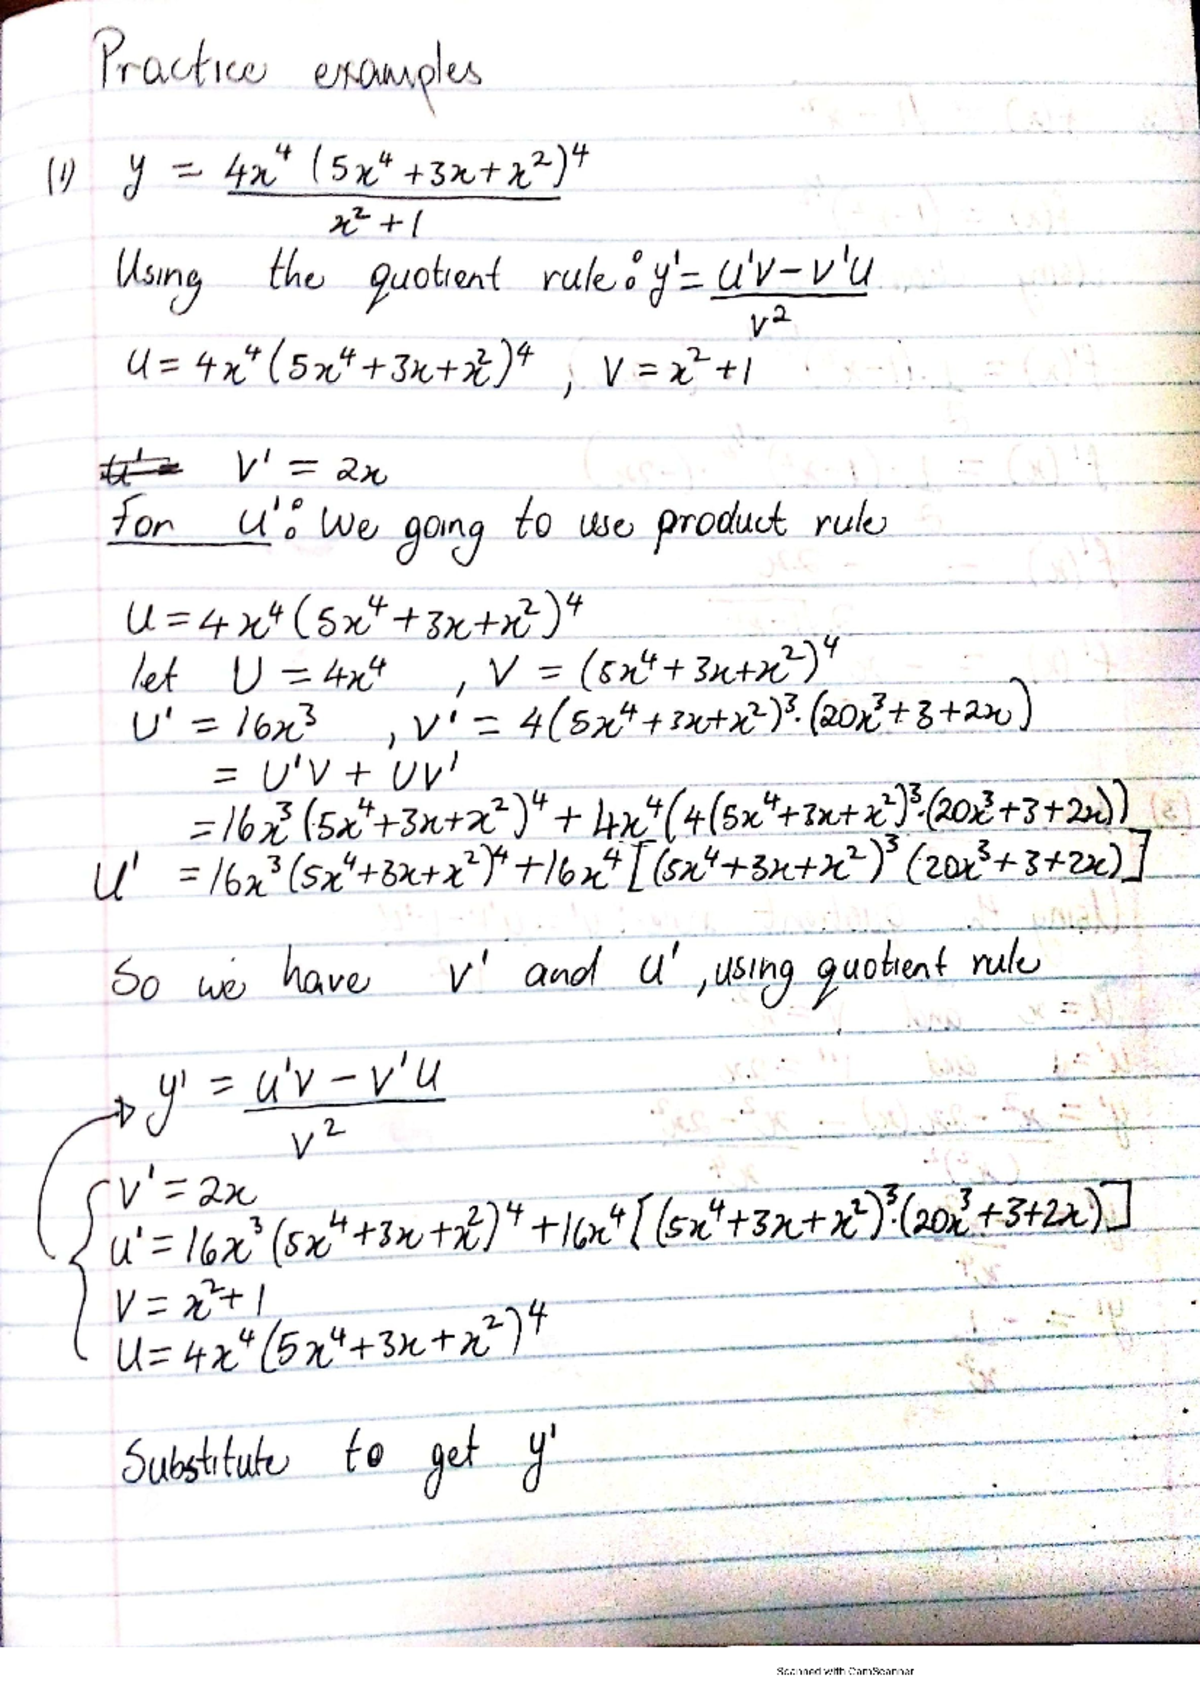 Practice examples
(1) y = 4x⁴ (5x⁴ +3x+x²)⁴
x² +1
Using the quotient rule: y' = u'v - v'u
v²
u = 4x⁴(5x⁴+3x+x²)⁴ , v = x²+1
v' = 2x
For u': We going to use product rule
u = 4x⁴(5x⁴+3x+x²)⁴
let U = 4x⁴ , V = (5x⁴+3x+x²)⁴
U' = 16x³ , V' = 4(5x⁴+3x+x²)³·(20x³+3+2x)
= U'V + UV'
= 16x³(5x⁴+3x+x²)⁴ + 4x⁴(4(5x⁴+3x+x²)³·(20x³+3+2x))
u' = 16x³(5x⁴+3x+x²)⁴ + 16x⁴[(5x⁴+3x+x²)³(20x³+3+2x)]
So we have v' and u' , using quotient rule
y' = u'v - v'u
v²
v' = 2x
u' = 16x³(5x⁴+3x+x²)⁴ + 16x⁴[(5x⁴+3x+x²)³·(20x³+3+2x)]
v = x²+1
u = 4x⁴(5x⁴+3x+x²)⁴
Substitute to get y'
Scanned with CamScanner